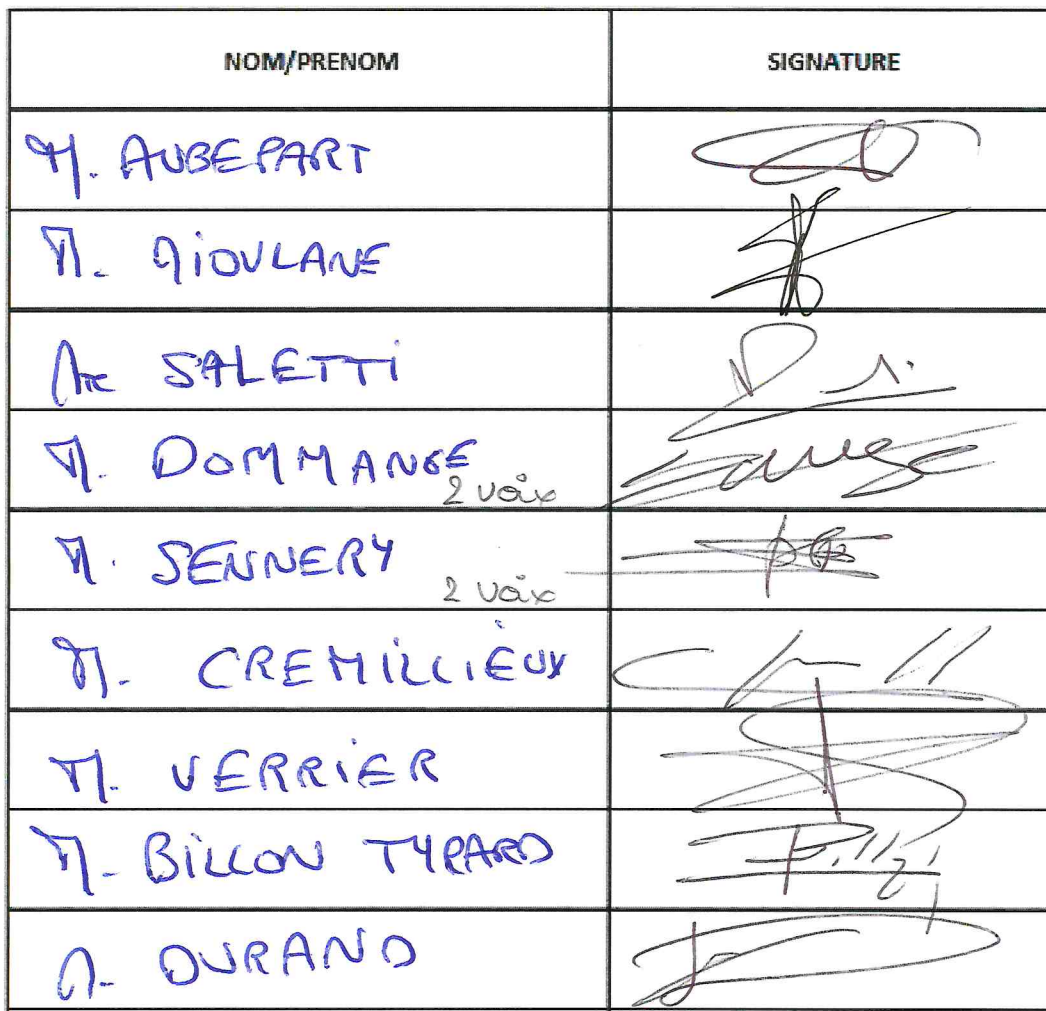 NOM/PRENOM SIGNATURE
M. AUBEPART
M. MIOULANE
Me SALETTI
M. DOMMANGE
2 voix
M. SENNERY
2 voix
M. CREMILLIEUX
M. VERRIER
M. BILLON TYRARD
M. DURAND